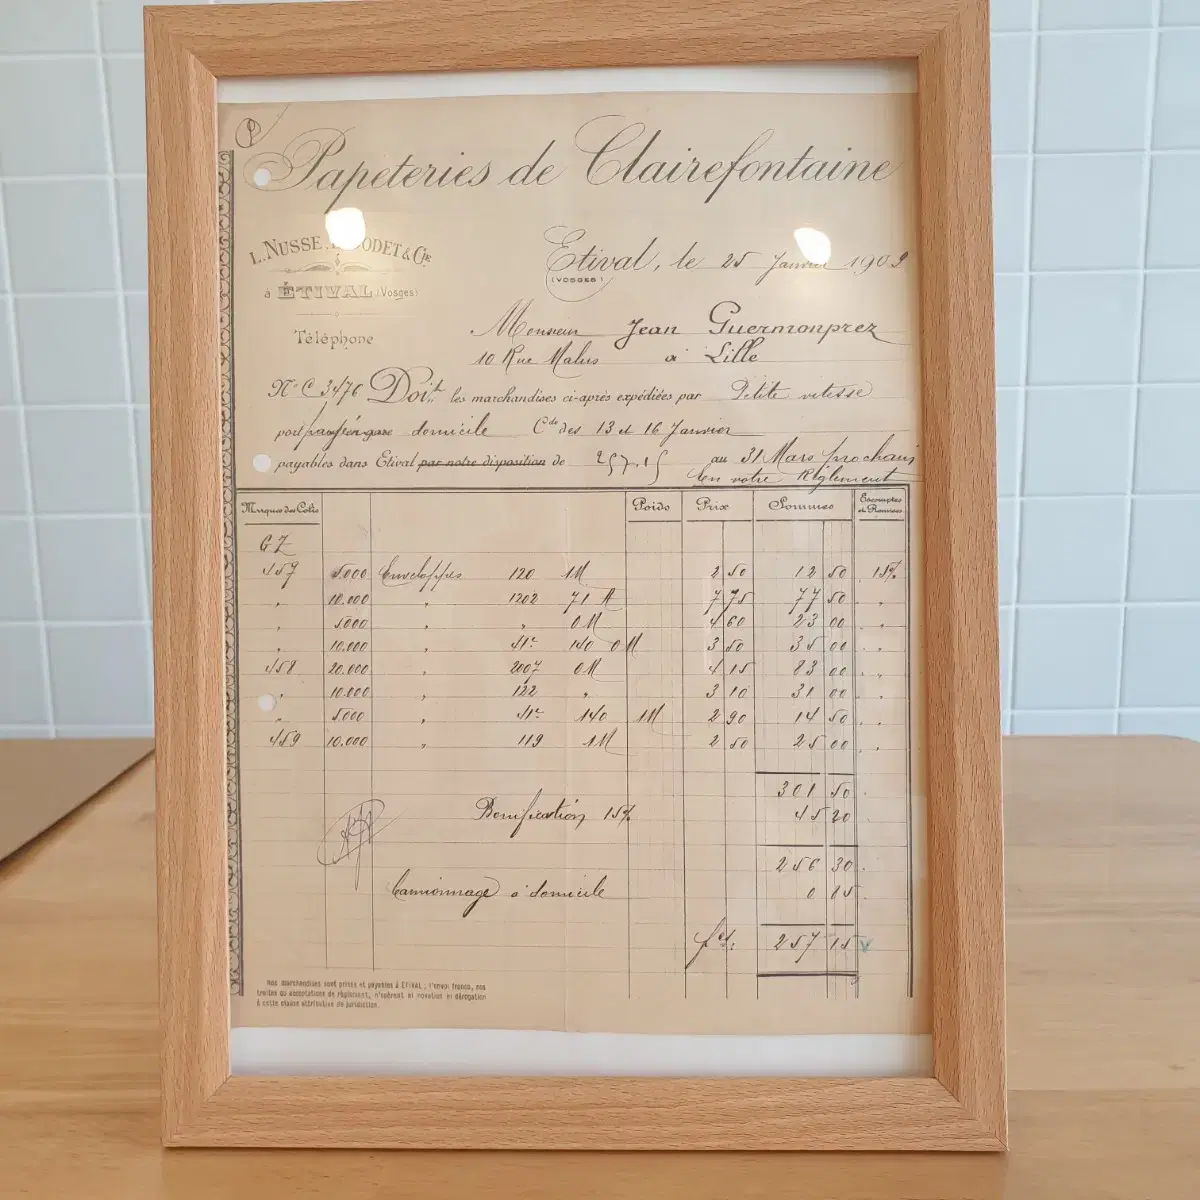 Papeteries de Clairefontaine
L. NUSSE, & Cie
à ÉTIVAL (Vosges)
Téléphone
Etival, le 25 Janvier 1909
(VOSGES)
Monsieur Jean Guermonprez
10 Rue Malus à Lille
No C 3476 Doit les marchandises ci-après expédiées par Petite vitesse
port domicile Cdes des 13 et 16 Janvier
payables dans Etival par notre disposition de 257.15 au 31 Mars prochain
En votre Règlement
Marques des Colis Poids Prix Sommes Escomptes et Remises
GZ
457 5.000 Enveloppes 120 1M 2 50 12 50 15%
" 10.000 " 1202 71 M 7 75 77 50 "
" 5.000 " " 0M 4 60 23 00 "
" 10.000 " 140 0M 3 50 35 00 "
458 20.000 " 2007 0M 4 15 83 00 "
" 10.000 " 122 " 3 10 31 00 "
" 5.000 " 140 1M 2 90 14 50 "
459 10.000 " 119 1M 2 50 25 00 "
301 50
Bonification 15% 45 20
256 30
Camionnage à domicile 0 85
fcs: 257 15
Nos marchandises sont prises et payables à ETIVAL, l'envoi franco, nos
traites ou acceptations de règlement, n'opèrent ni novation ni dérogation
à cette clause attributive de juridiction.